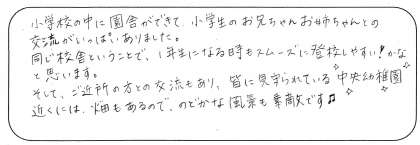 小学校の中に園舎ができて、小学生のお兄ちゃんお姉ちゃんとの
交流がいっぱいありました。
同じ校舎ということで、1年生になる時もスムーズに登校しやすい！かな
と思います。
そして、ご近所の方との交流もあり、皆に見守られている中央幼稚園
近くには、畑もあるので、のどかな風景も素敵です♫